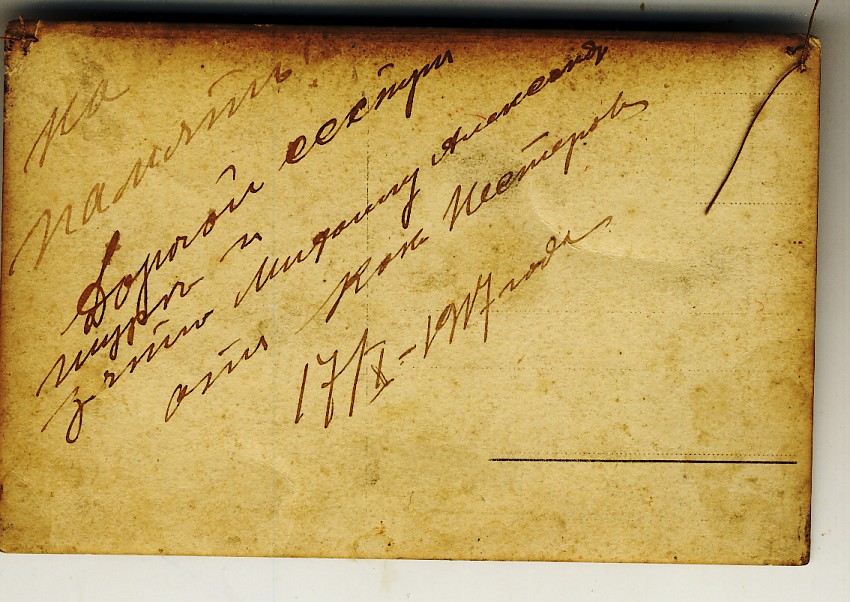 На
память!
Дорогой сестри
Шуре и
зятю Михаилу Александ
отъ Кон Нестеровъ
17/X-1917 года